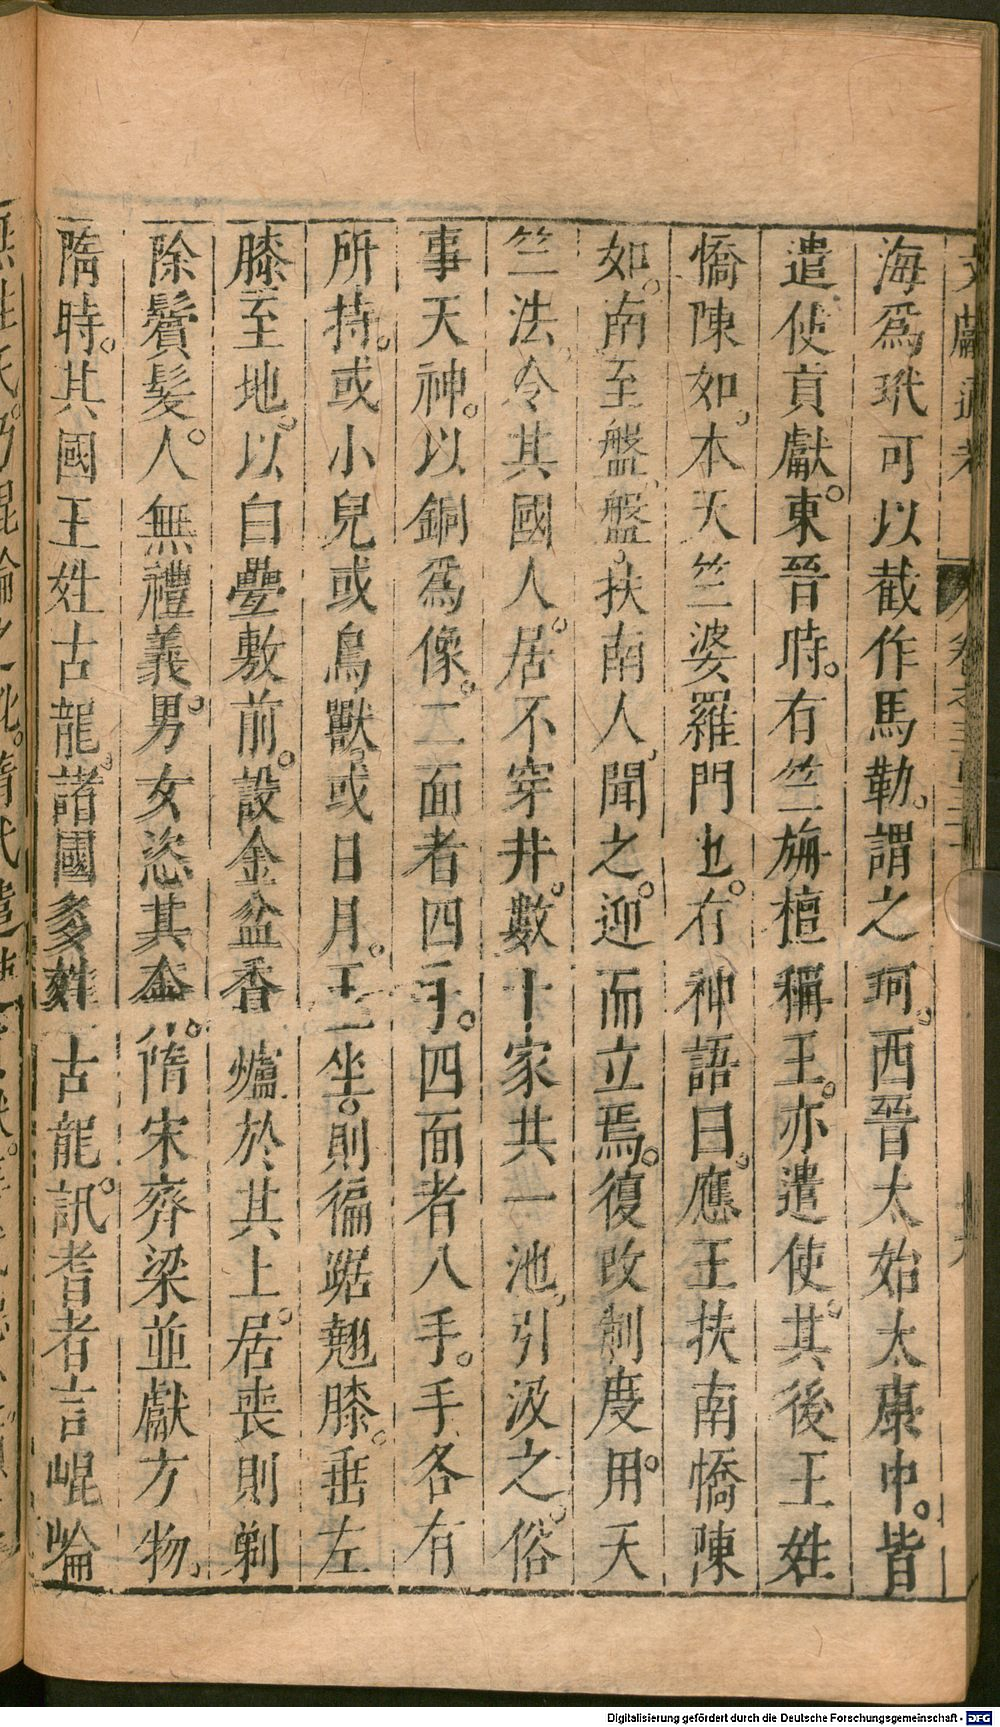 文獻通考 卷之三百三十一 十九
海爲玳可以截作馬勒。謂之珂。西晉太始太康中。皆
遣使貢獻。東晉時。有竺旃檀稱王。亦遣使。其後王姓
憍陳如、本天竺婆羅門也。有神語曰。應王扶南憍陳
如。南至盤盤。扶南人、聞之。迎而立焉。復改制度。用天
竺法。令其國人。居不穿井。數十家共一池、引汲之。俗
事天神。以銅爲像。二面者四手。四面者八手。手各有
所持。或小兒或鳥獸、或日月。王坐。則徧踞翹膝。垂左
膝至地。以白疊敷前。設金盆香爐於其上。居喪則剃
除鬢髮。人無禮義。男女恣其奔隋。宋齊梁並獻方物、
隋時。其國王姓古龍。諸國多姓古龍。訊耆者言崐崘
無姓氏。乃崐崘之訛。隋代遣
Digitalisierung gefördert durch die Deutsche Forschungsgemeinschaft - DFG